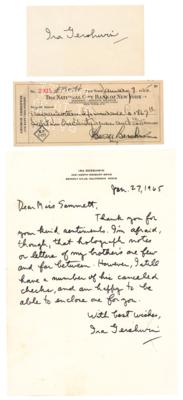 Ira Gershwin
THE NATIONAL CITY BANK OF NEW YORK
George Gershwin
IRA GERSHWIN
Jan. 27, 1965
Dear Miss Sammett,
Thank you for
your kind sentiments. I'm afraid,
though, that holograph notes
or letters of my brother's are few
and far between. However, I still
have a number of his canceled
checks, and am happy to be
able to enclose one for you.
With best wishes,
Ira Gershwin